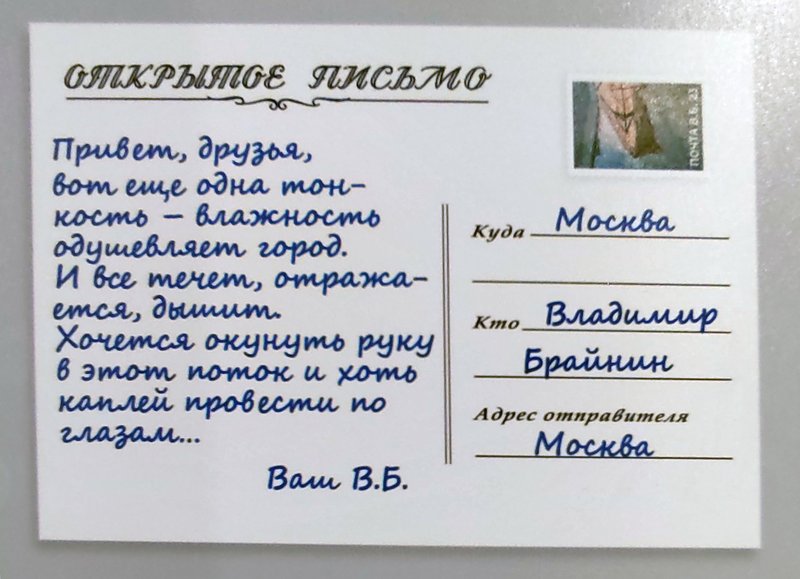 ОТКРЫТОЕ ПИСЬМО
Привет, друзья,
вот еще одна тон-
кость – влажность
одушевляет город.
И все течет, отража-
ется, дышит.
Хочется окунуть руку
в этот поток и хоть
каплей провести по
глазам...
Ваш В.Б.
ПОЧТА В.Б. 23
Куда Москва
Кто Владимир
Брайнин
Адрес отправителя
Москва